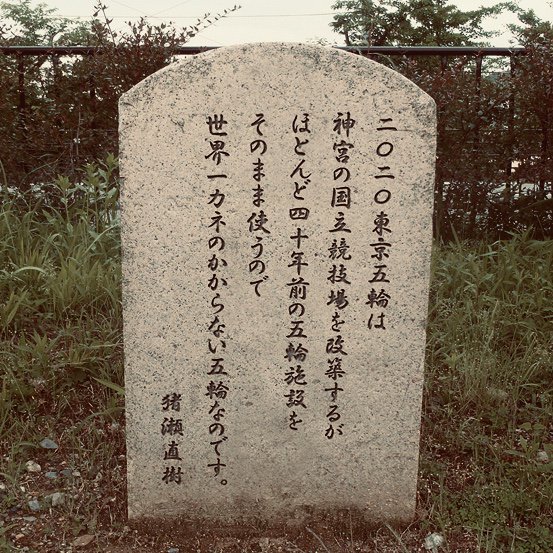 二〇二〇東京五輪は
神宮の国立競技場を改築するが
ほとんど四十年前の五輪施設を
そのまま使うので
世界一カネのかからない五輪なのです。
猪瀬直樹